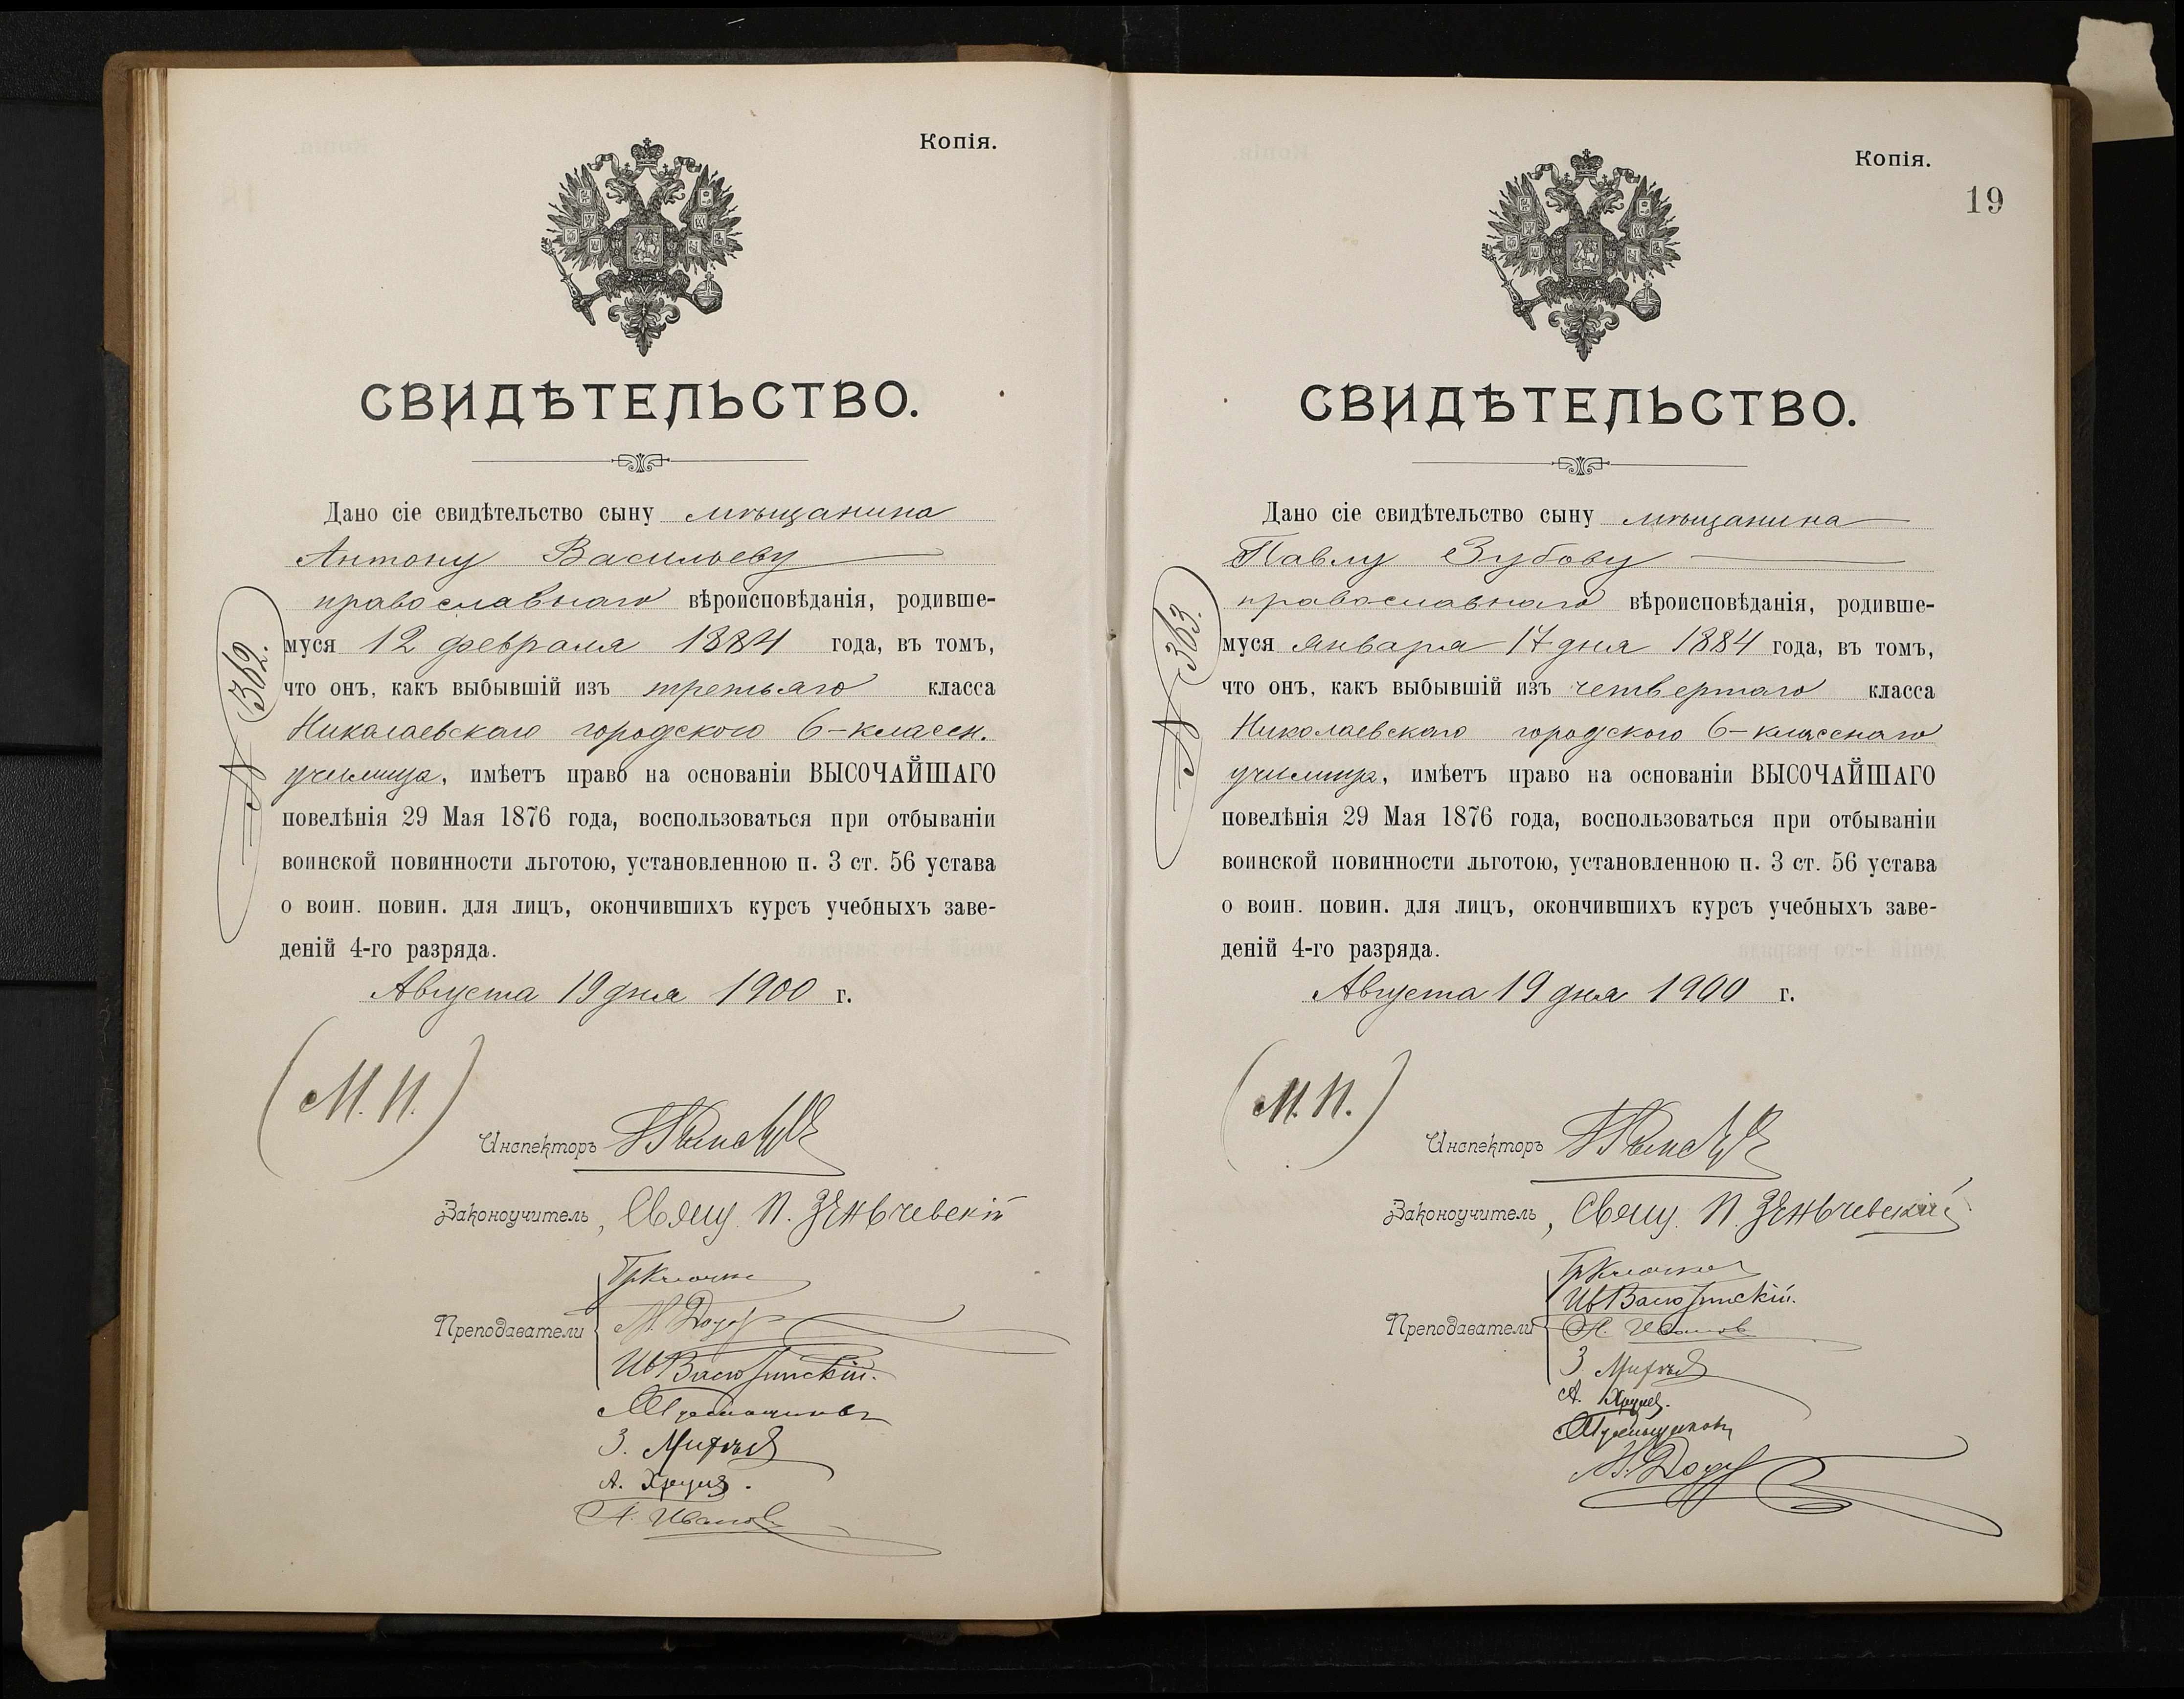 Копія.
СВИДѢТЕЛЬСТВО.
Дано сіе свидѣтельство сыну мѣщанина
Антону Васильеву
православнаго вѣроисповѣданія, родивше-
муся 12 февраля 1884 года, въ томъ,
что онъ, какъ выбывшій изъ третьяго класса
Николаевскаго городского 6-классн.
училища, имѣетъ право на основаніи ВЫСОЧАЙШАГО
повелѣнія 29 Мая 1876 года, воспользоваться при отбываніи
воинской повинности льготою, установленною п. 3 ст. 56 устава
о воин. повин. для лицъ, окончившихъ курсъ учебныхъ заве-
деній 4-го разряда.
Августа 19 дня 1900 г.
№ 362.
(М. П.)
Инспекторъ
Законоучитель, Свящ. П.
Преподаватели
А. Иванов
Копія.
19
СВИДѢТЕЛЬСТВО.
Дано сіе свидѣтельство сыну мѣщанина
Павлу Зубову
православнаго вѣроисповѣданія, родивше-
муся января 17 дня 1884 года, въ томъ,
что онъ, какъ выбывшій изъ четвертаго класса
Николаевскаго городского 6-класснаго
училища, имѣетъ право на основаніи ВЫСОЧАЙШАГО
повелѣнія 29 Мая 1876 года, воспользоваться при отбываніи
воинской повинности льготою, установленною п. 3 ст. 56 устава
о воин. повин. для лицъ, окончившихъ курсъ учебныхъ заве-
деній 4-го разряда.
Августа 19 дня 1900 г.
№ 363.
(М. П.)
Инспекторъ
Законоучитель, Свящ. П.
Преподаватели
А. Иванов